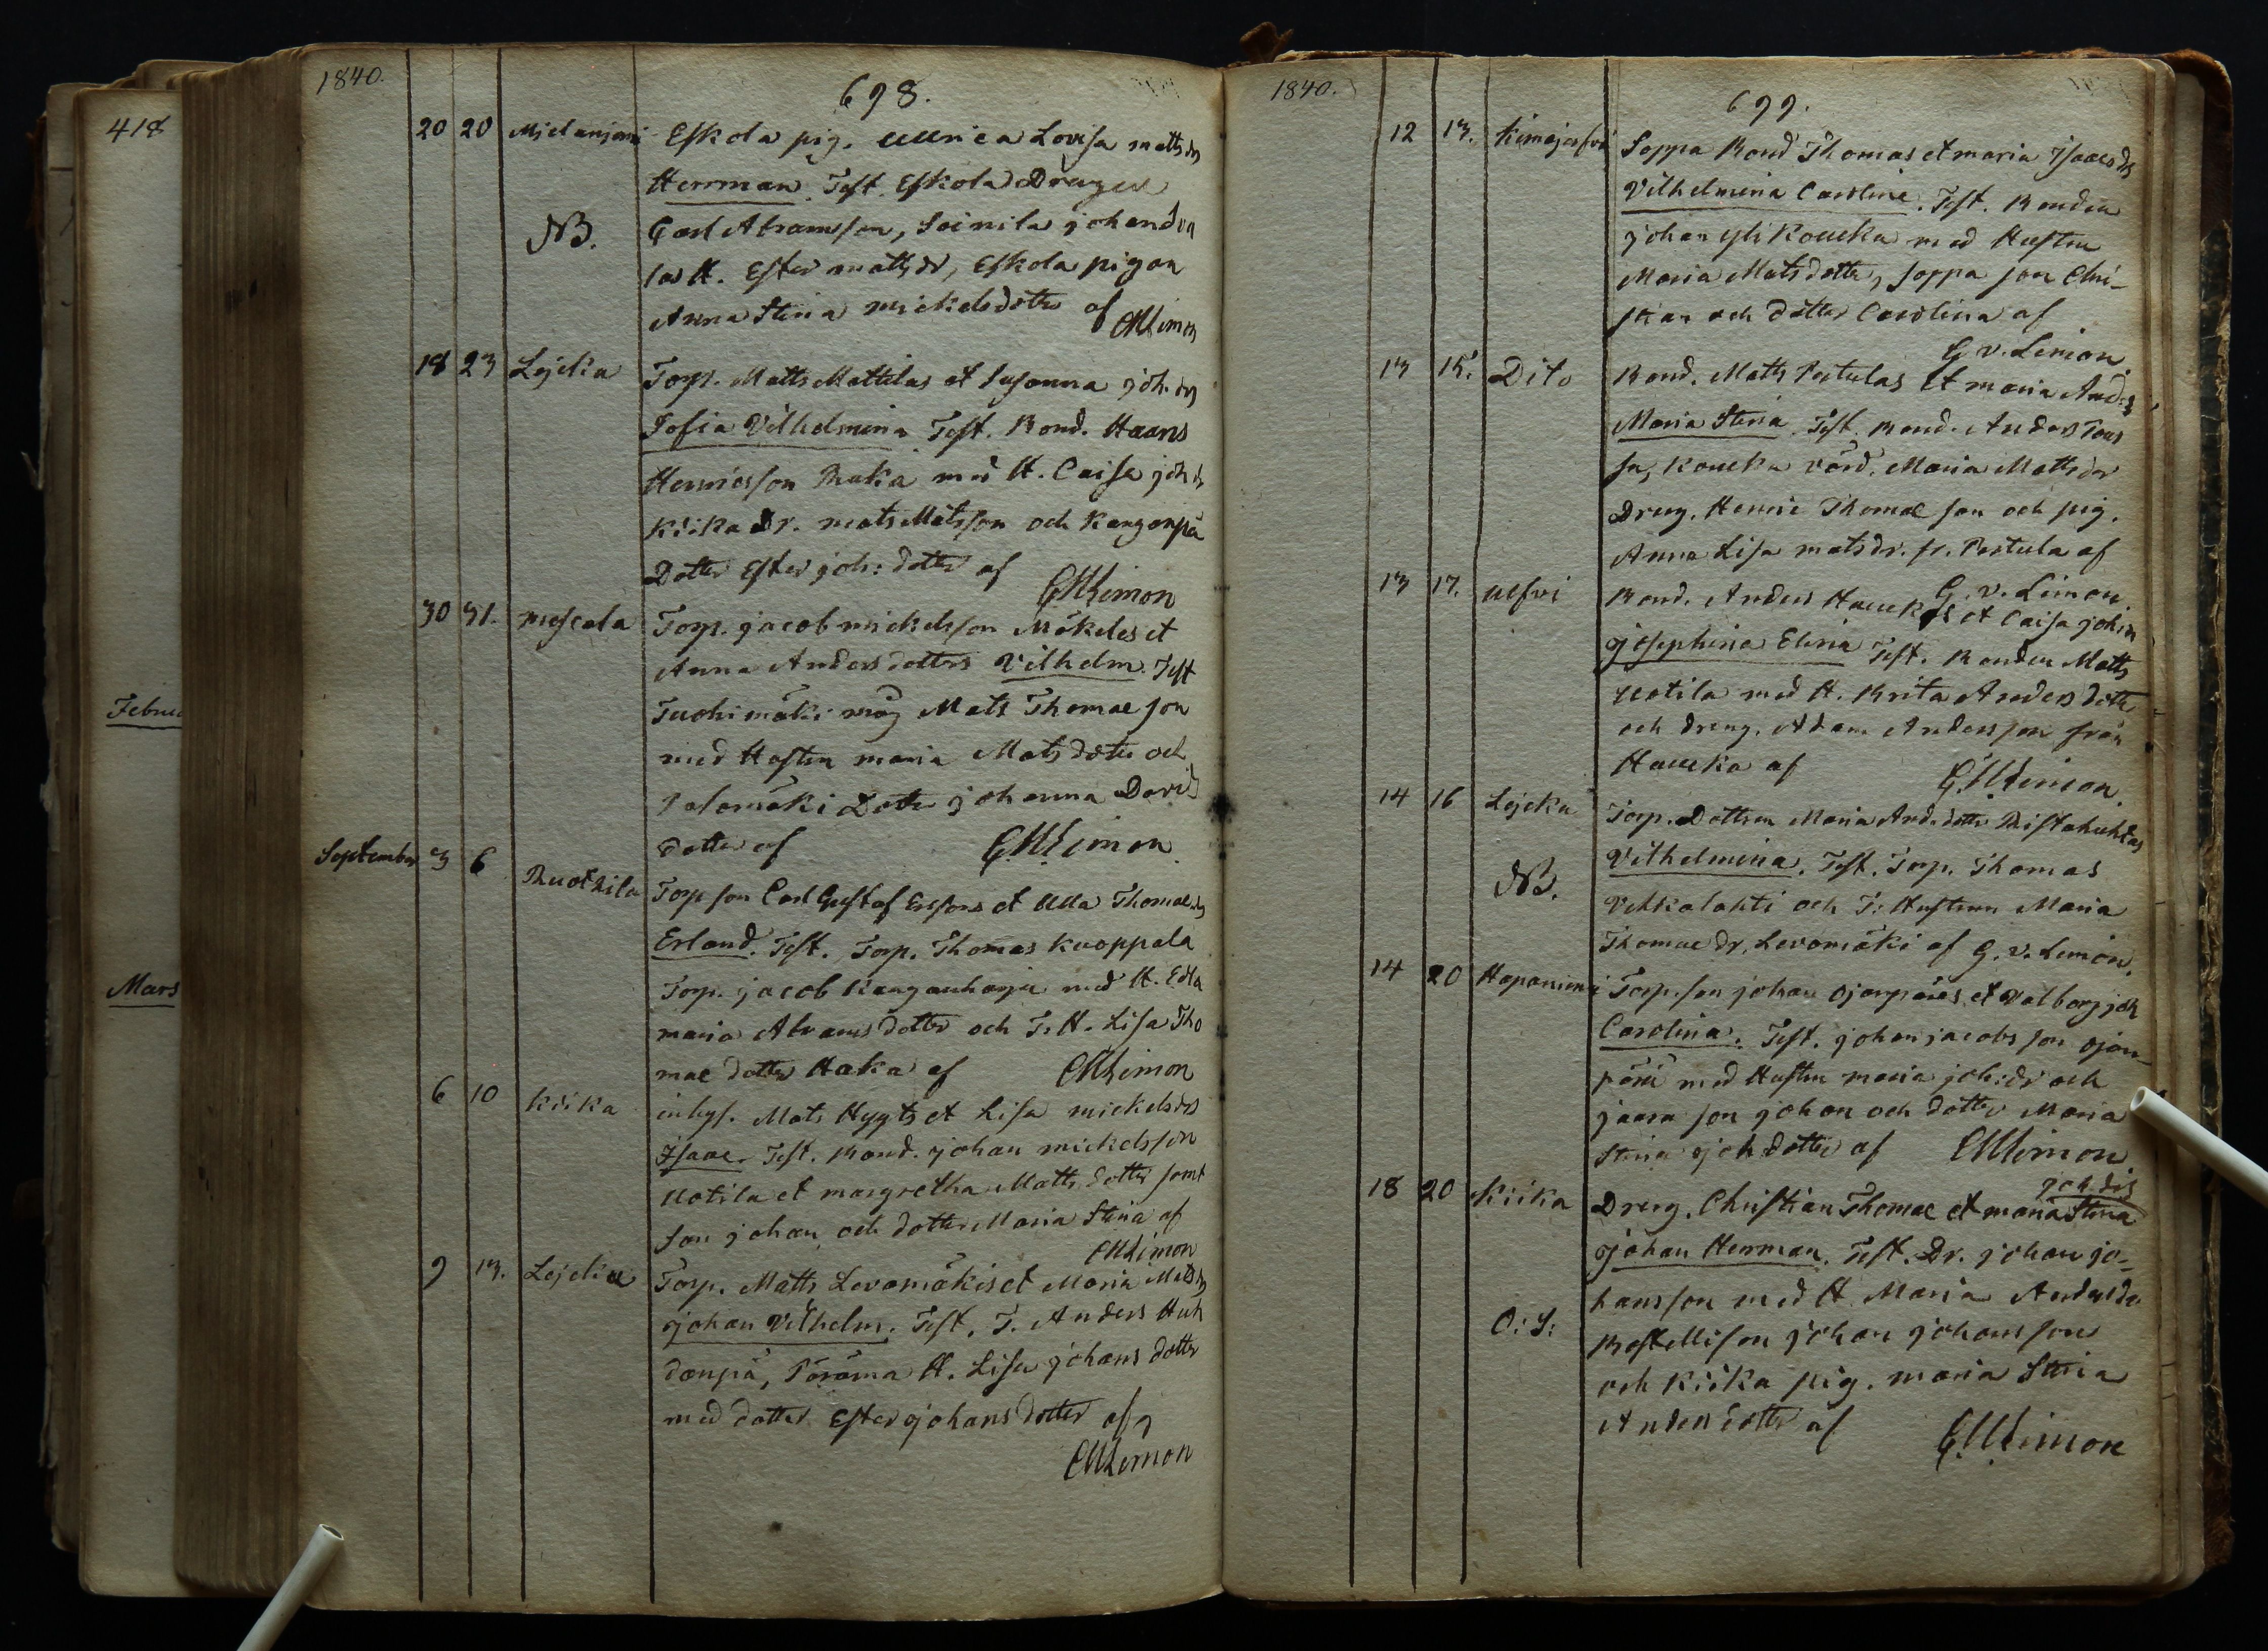 418
Februa
Mars
1840.
698.
20 20 Mjelanjemi Eskola pig. Ullrica Lovisa mattsdrs
Herrman. Test. Eskola Drengen
NB. Carl Abramsson, Soinila johan
las H. Ester mattsdr, Eskola pigan
Anna Stina mickelsdotter af GWLimon
18 23 Lejelia Torp. Matts Mattilas et Susanna joh. drs
Sofia Vilhelmina Test. Bond. Haans
Henricsson Ruka med H. Caisa joh dr
Kiika Dr. mats Matsson och Kangonpä
Dotter Ester joh: dotter af GWLimon
30 31. moscala Torp. jacob mickelsson Mäkeles et
Anna Andersdotters Vilhelm. Test
Tuohimäki måg Mats Thomae son
med Hustru maria Matsdotter och
Salomäki Dotter johanna David
dotter af GWLimon
September 3 6 Ruohila Torp son Carl Gustaf Ersfors et Ulla Thomaedrs
Erland. Test. Torp. Thomas Kuoppala
Torp. jacob Kanganharju med H. Edla
maria Abrams dotter och T. H. Lisa Tho
mae dotter Haka af GWLimon
6 10 Kiika inhys. Mats Hygts et Lisa mickelsdrs
Isaac. Test. Bond. johan mickelsson
Uotila et margretha Matts dotter samt
son johan och dotter Maria Stina af
GWLimon
9 13. Lejelia Torp. Matts Levomäkis et Maria Matsdrs
johan Vilhelm. Test. T. Anders Huh
danpä, Pöröma H. Lisa johans dotter
med dotter Ester johans dotter af
GWLimon
1840.
699.
12 13. Kimejerfvi Soppa Bond Thomas et maria Isaacs dr
Vilhelmina Caroline. Test. Bonden
johan yli Koueka med Hustru
Maria Matsdotter, Soppa son Chri-
stian och dotter Carolina af
G. v. Limon.
13 15. Dito Bond. Matts Pertulas et maria And:drs
Maria Stina. Test. Bond. Anders Tour
su, Koueka vård. Maria Matts dr
Dreng. Henric Thomae son och pig.
Anna Lisa matsdr. fr. Pertula af
G. v. Limon.
13 17. ulfvi Bond. Anders Haukas et Caisa joh:dr
josephina Elina Test. Bonden Matts
Uotila med H. Brita Anders dotter
och dreng. Adam Andersson från
Haueka af GWLimon.
14 16 Lejelia Torp. Dottren Maria And. dotter Ristahuhtas
Vilhelmina. Test. Torp. Thomas
NB. Vehkalahti och T: Hustrun Maria
Thomae dr, Levomäki af G. v. Limon.
14 20 Haponiemi Torp. son johan ojanpäres et Valborg joh
Carolina. Test. johan jacobs son ojan-
päre med Hustru maria joh:dr och
jaara son johan och dotter Maria
Stina joh dotter af GWLimon.
joh. drs
18 20 Kiika Dreng. Christian Thomae et maria Stina
johan Herman. Test. Dr. johan jo-
hansson med H. Maria Andersdr
O: S: Bostelli son johan johansson
och Kiika pig. maria Stina
Anders dotter af GWLimon